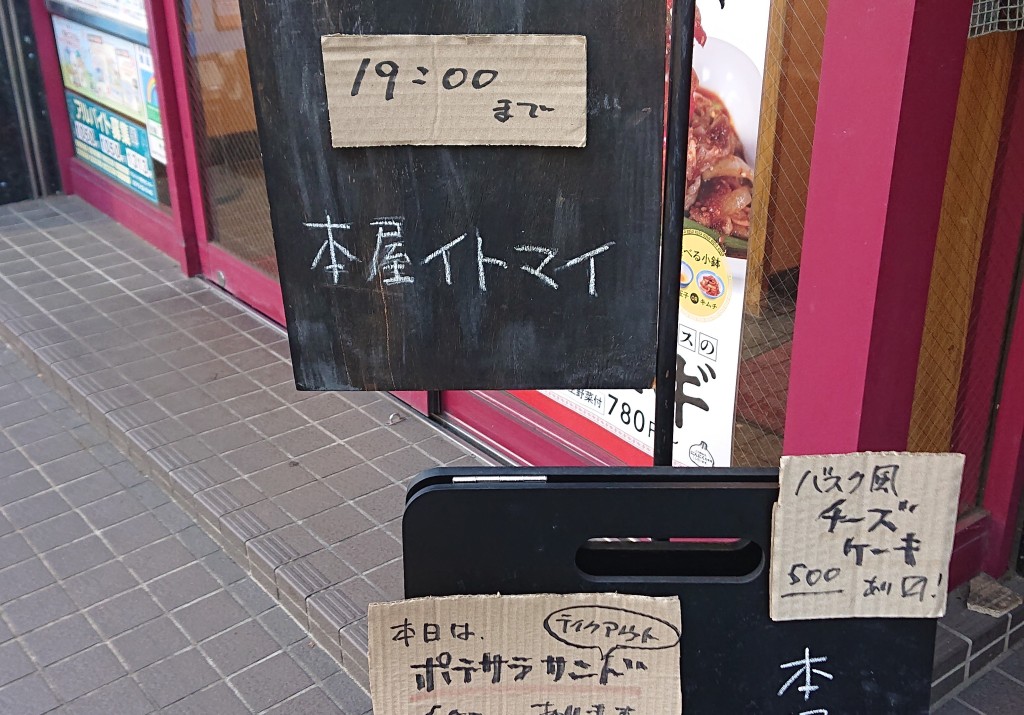 19:00
まで
本屋イトマイ
バスク風
チーズ
ケーキ
500 あり〼!
本日は、
テイクアウト
ポテサラサンド
あります
本
アルバイト募集
べる小鉢
キムチ
スの
ギ
野菜付
780円